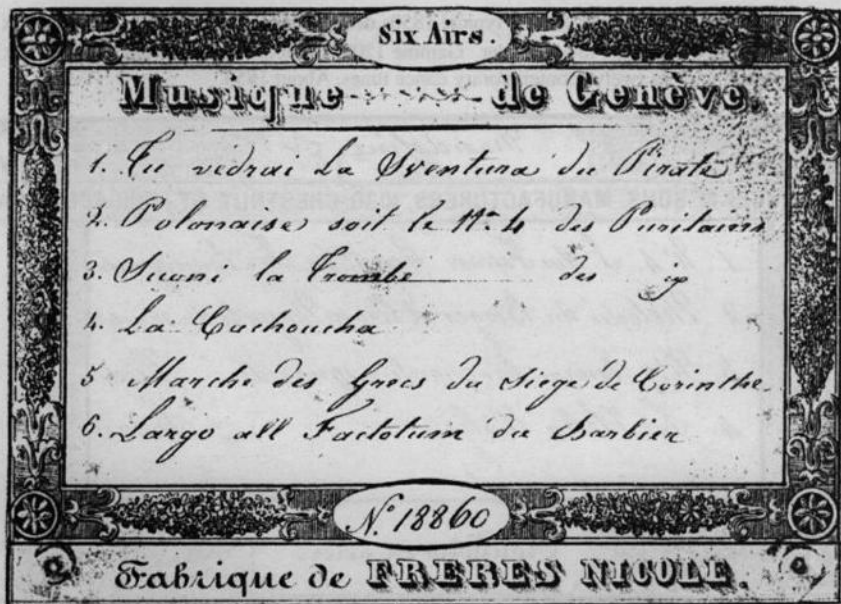 Six Airs.
Musique de Genève.
1. Tu vedrai La Sventura du Pirate
2. Polonaise soit le Nº 4 des Puritains
3. Suoni la Trombe des
4. La Cachoucha
5 Marche des Grecs du Siege de Corinthe
6. Largo all Factotum du Barbier
Nº 18860
Fabrique de FRERES NICOLE.